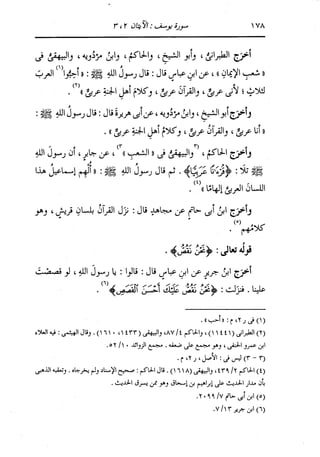 ١٧٨ سورة يوسف : الآيتان ٢ ، ٣
أخرج الطبرانى ، وأبو الشيخ ، والحاكم ، وابن مردويه ، والبيهقى فى
« شعب الإيمان » ، عن ابن عباس قال : قال رسول الله ﷺ : « أحبوا(١) العرب
لثلاث ؛ لأنى عربى ، والقرآن عربى ، وكلام أهل الجنة عربى »(٢) .
وأخرج أبو الشيخ ، وابن مردويه ، عن أبى هريرة قال : قال رسول الله ﷺ :
« أنا عربى ، والقرآن عربى ، وكلام أهل الجنة عربى » .
وأخرج الحاكم ، (٣)والبيهقى فى « الشعب »(٣) ، عن جابر ، أن رسول الله
ﷺ تلا : ﴿قُرْءَانًا عَرَبِيًّا﴾ . ثم قال رسول الله ﷺ : « أُلهم إسماعيل هذا
اللسان العربى إلهامًا »(٤) .
وأخرج ابن أبى حاتم عن مجاهد قال : نزل القرآن بلسان قريش ، وهو
كلامهم(٥) .
قوله تعالى : ﴿نَحْنُ نَقُصُّ﴾ .
أخرج ابن جرير عن ابن عباس قال : قالوا : يا رسول الله ، لو قصصت
علينا . فنزلت : ﴿نَحْنُ نَقُصُّ عَلَيْكَ أَحْسَنَ الْقَصَصِ﴾(٦) .
(١) فى ر ٢ ، م : « أحب » .
(٢) الطبرانى (١١٤٤١) ، والحاكم ٤/ ٨٧، والبيهقى (١٤٣٣، ١٦١٠) . وقال الهيثمى : فيه العلاء
ابن عمرو الحنفى ، وهو مجمع على ضعفه . مجمع الزوائد ١٠/ ٥٢.
(٣ - ٣) ليس فى : الأصل ، ر ٢، م .
(٤) الحاكم ٢/ ٤٣٩، والبيهقى (١٦١٨) . قال الحاكم : صحيح الإسناد ولم يخرجاه . وتعقبه الذهبى
بأن مدار الحديث على إبراهيم بن إسحاق وهو ممن يسرق الحديث .
(٥) ابن أبى حاتم ٧/ ٢٠٩٩.
(٦) ابن جرير ١٣/ ٧.